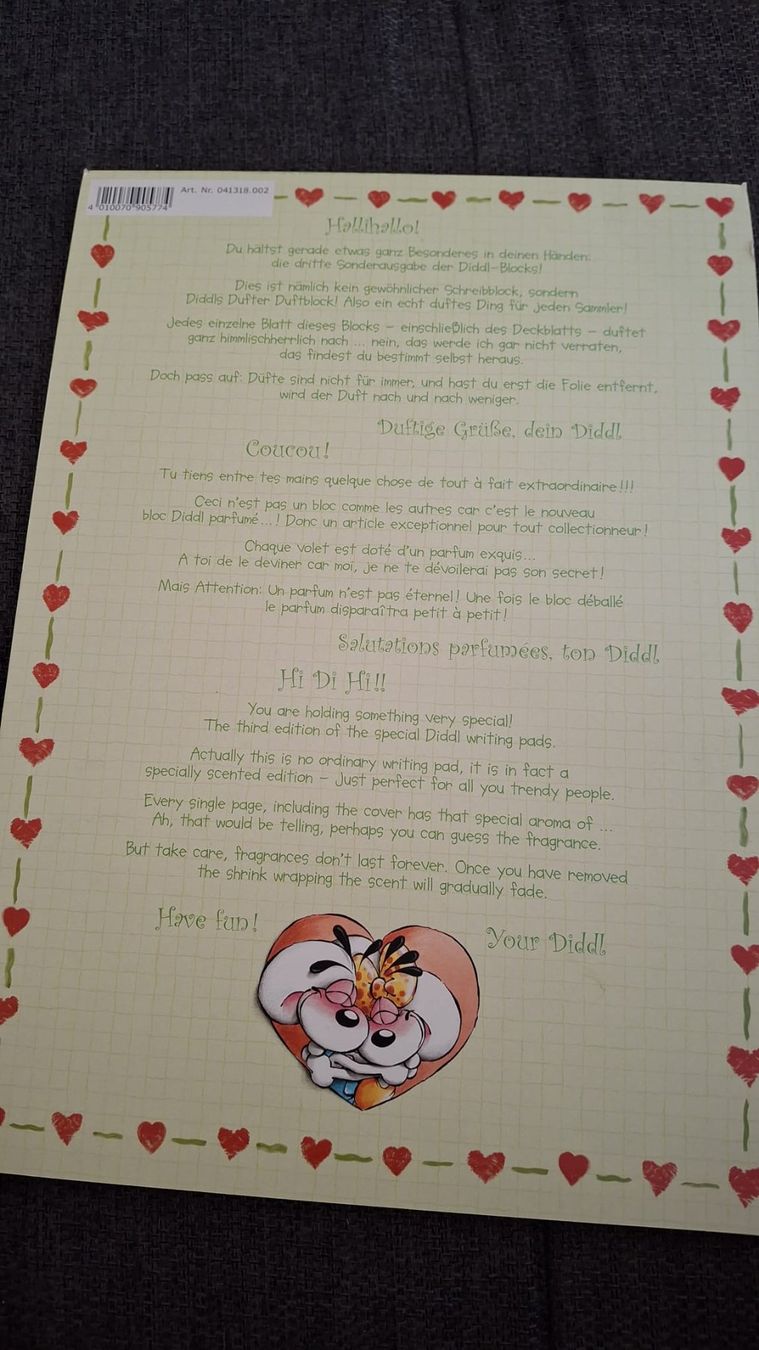 Art. Nr. 041318.002
4 010070 905774
Hallihallo!
Du hältst gerade etwas ganz Besonderes in deinen Händen:
die dritte Sonderausgabe der Diddl-Blocks!
Dies ist nämlich kein gewöhnlicher Schreibblock, sondern
Diddls Dufter Duftblock! Also ein echt duftes Ding für jeden Sammler!
Jedes einzelne Blatt dieses Blocks – einschließlich des Deckblatts – duftet
ganz himmlischherrlich nach ... nein, das werde ich gar nicht verraten,
das findest du bestimmt selbst heraus.
Doch pass auf: Düfte sind nicht für immer, und hast du erst die Folie entfernt,
wird der Duft nach und nach weniger.
Duftige Grüße, dein Diddl
Coucou!
Tu tiens entre tes mains quelque chose de tout à fait extraordinaire!!!
Ceci n'est pas un bloc comme les autres car c'est le nouveau
bloc Diddl parfumé...! Donc un article exceptionnel pour tout collectionneur!
Chaque volet est doté d'un parfum exquis...
A toi de le deviner car moi, je ne te dévoilerai pas son secret!
Mais Attention: Un parfum n'est pas éternel! Une fois le bloc déballé
le parfum disparaîtra petit à petit!
Salutations parfumées, ton Diddl
Hi Di Hi!!
You are holding something very special!
The third edition of the special Diddl writing pads.
Actually this is no ordinary writing pad, it is in fact a
specially scented edition – Just perfect for all you trendy people.
Every single page, including the cover has that special aroma of ...
Ah, that would be telling, perhaps you can guess the fragrance.
But take care, fragrances don't last forever. Once you have removed
the shrink wrapping the scent will gradually fade.
Have fun!
Your Diddl